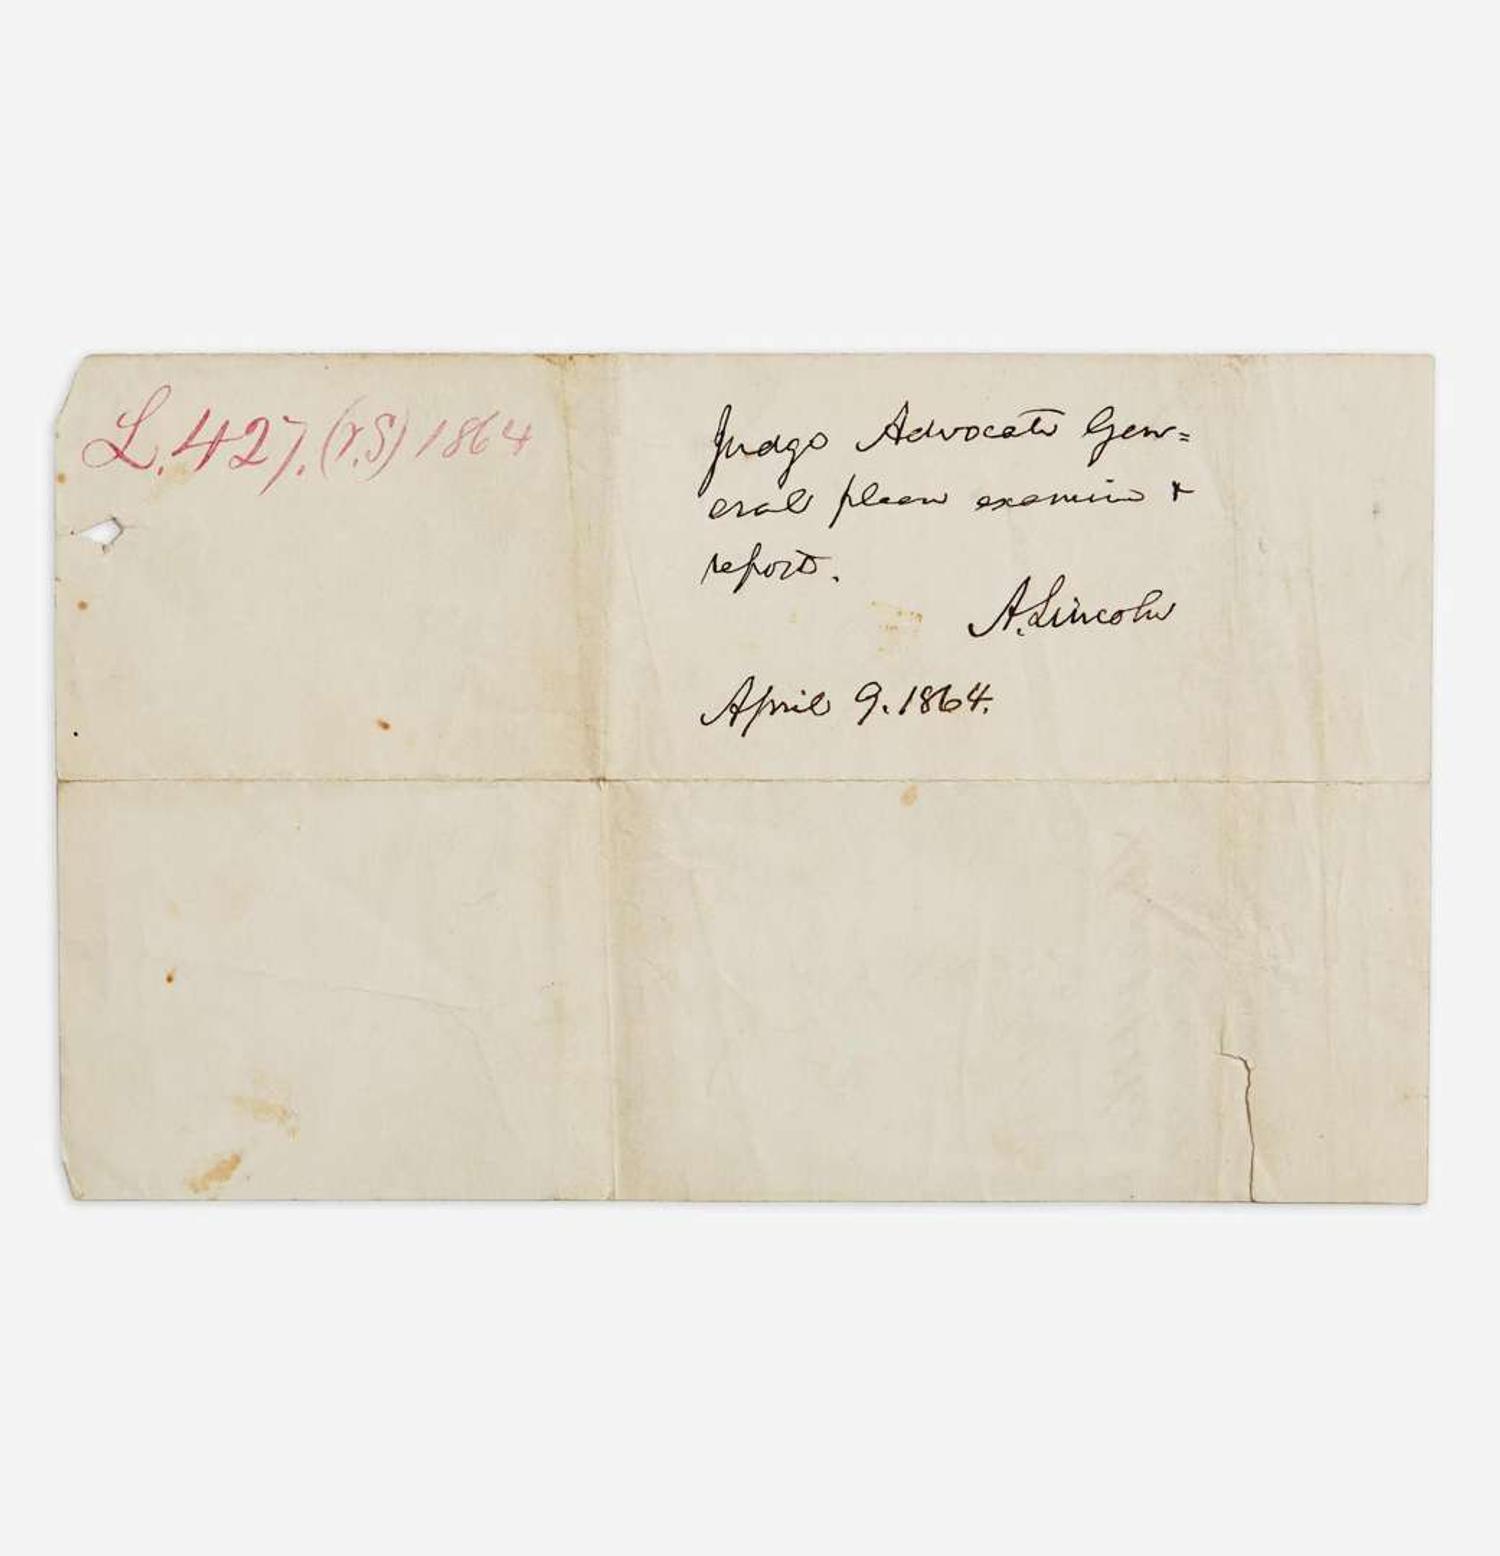 L. 427. (V.S) 1864
Judge Advocate Gen=
eral please examine &
report.
A. Lincoln
April 9. 1864.